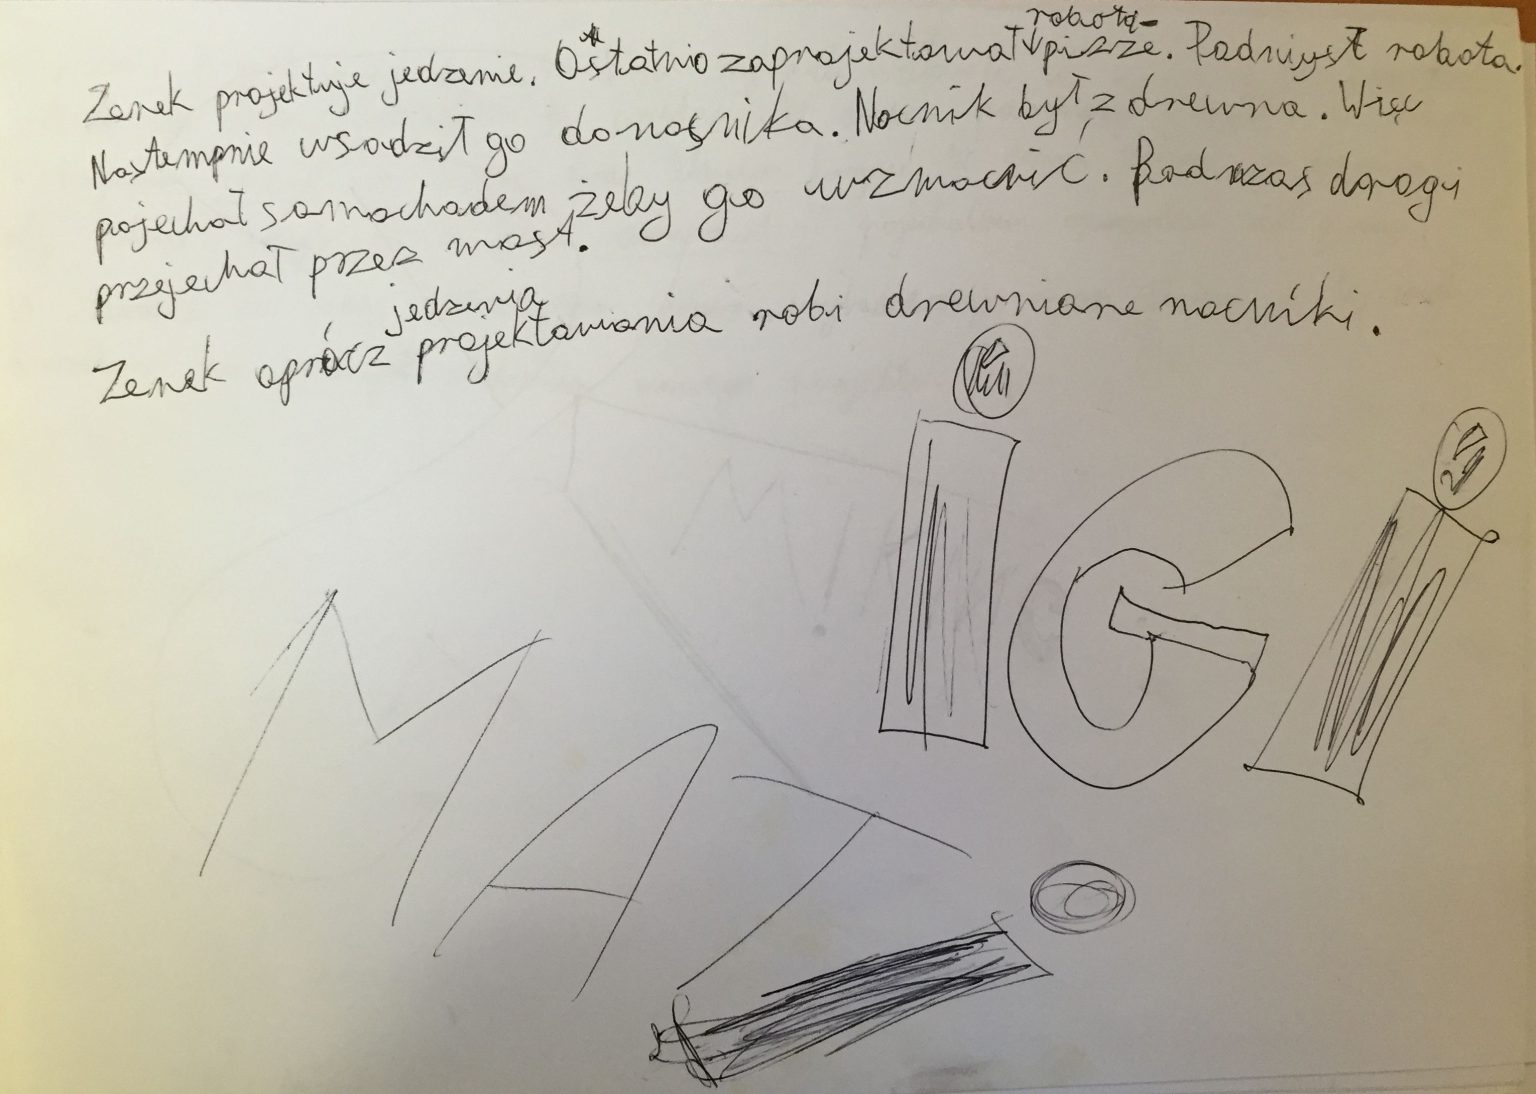 Zenek projektuje jedzenie. Ostatnio zaprojektował robota-pizze. Podniusł robota.
Nastempnie wsadził go do nocnika. Nocnik był z drewna. Więc
pojechał samochodem żeby go wzmocnić. Podczas drogi
przejechał przez most.
Zenek oprócz projektowania jedzenia robi drewniane nocniki.
iGi
MATi